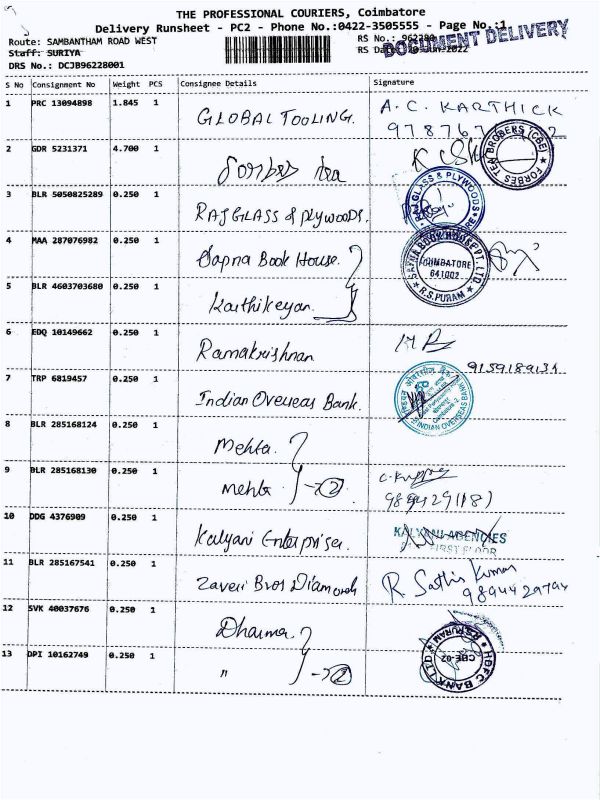 THE PROFESSIONAL COURIERS, Coimbatore
Delivery Runsheet - PC2 - Phone No.:0422-3505555 - Page No.:1
DOCUMENT DELIVERY
Route: SAMBANTHAM ROAD WEST
RS No.:
Staff: SURIYA
RS Date: 20-Jun-2022
DRS No.: DCJB96228001
S No Consignment No Weight PCS Consignee Details Signature
1 PRC 13094898 1.845 1 GLOBAL TOOLING. A.C. KARTHICK
97876
2 GDR 5231371 4.700 1 Forbes tea
FORBES TEA BROKERS (CBE)
3 BLR 5050825289 0.250 1 RAJ GLASS & PLYWOODS.
RAJ GLASS & PLYWOODS
4 MAA 287076982 0.250 1 Sapna Book House.
SAPNA BOOK HOUSE PVT. LTD.
COIMBATORE
641002
R.S.PURAM
5 BLR 4603703680 0.250 1 Karthikeyan.
6 EDQ 10149662 0.250 1 Ramakrishnan
9159189131
7 TRP 6819457 0.250 1 Indian Overseas Bank.
INDIAN OVERSEAS BANK
8 BLR 285168124 0.250 1 Mehta.
9 BLR 285168130 0.250 1 Mehta - 2
10 DDG 4376909 0.250 1 Kalyani Enterprises.
KALYANI AGENCIES
FIRST FLOOR
11 BLR 285167541 0.250 1 Zaveri Bros Diamonds R. Sathis Kumar
9894429794
12 SVK 40037676 0.250 1 Dharma.
13 DPI 10162749 0.250 1 " - 2
HDFC BANK LTD
R.S.PURAM
CBE-02